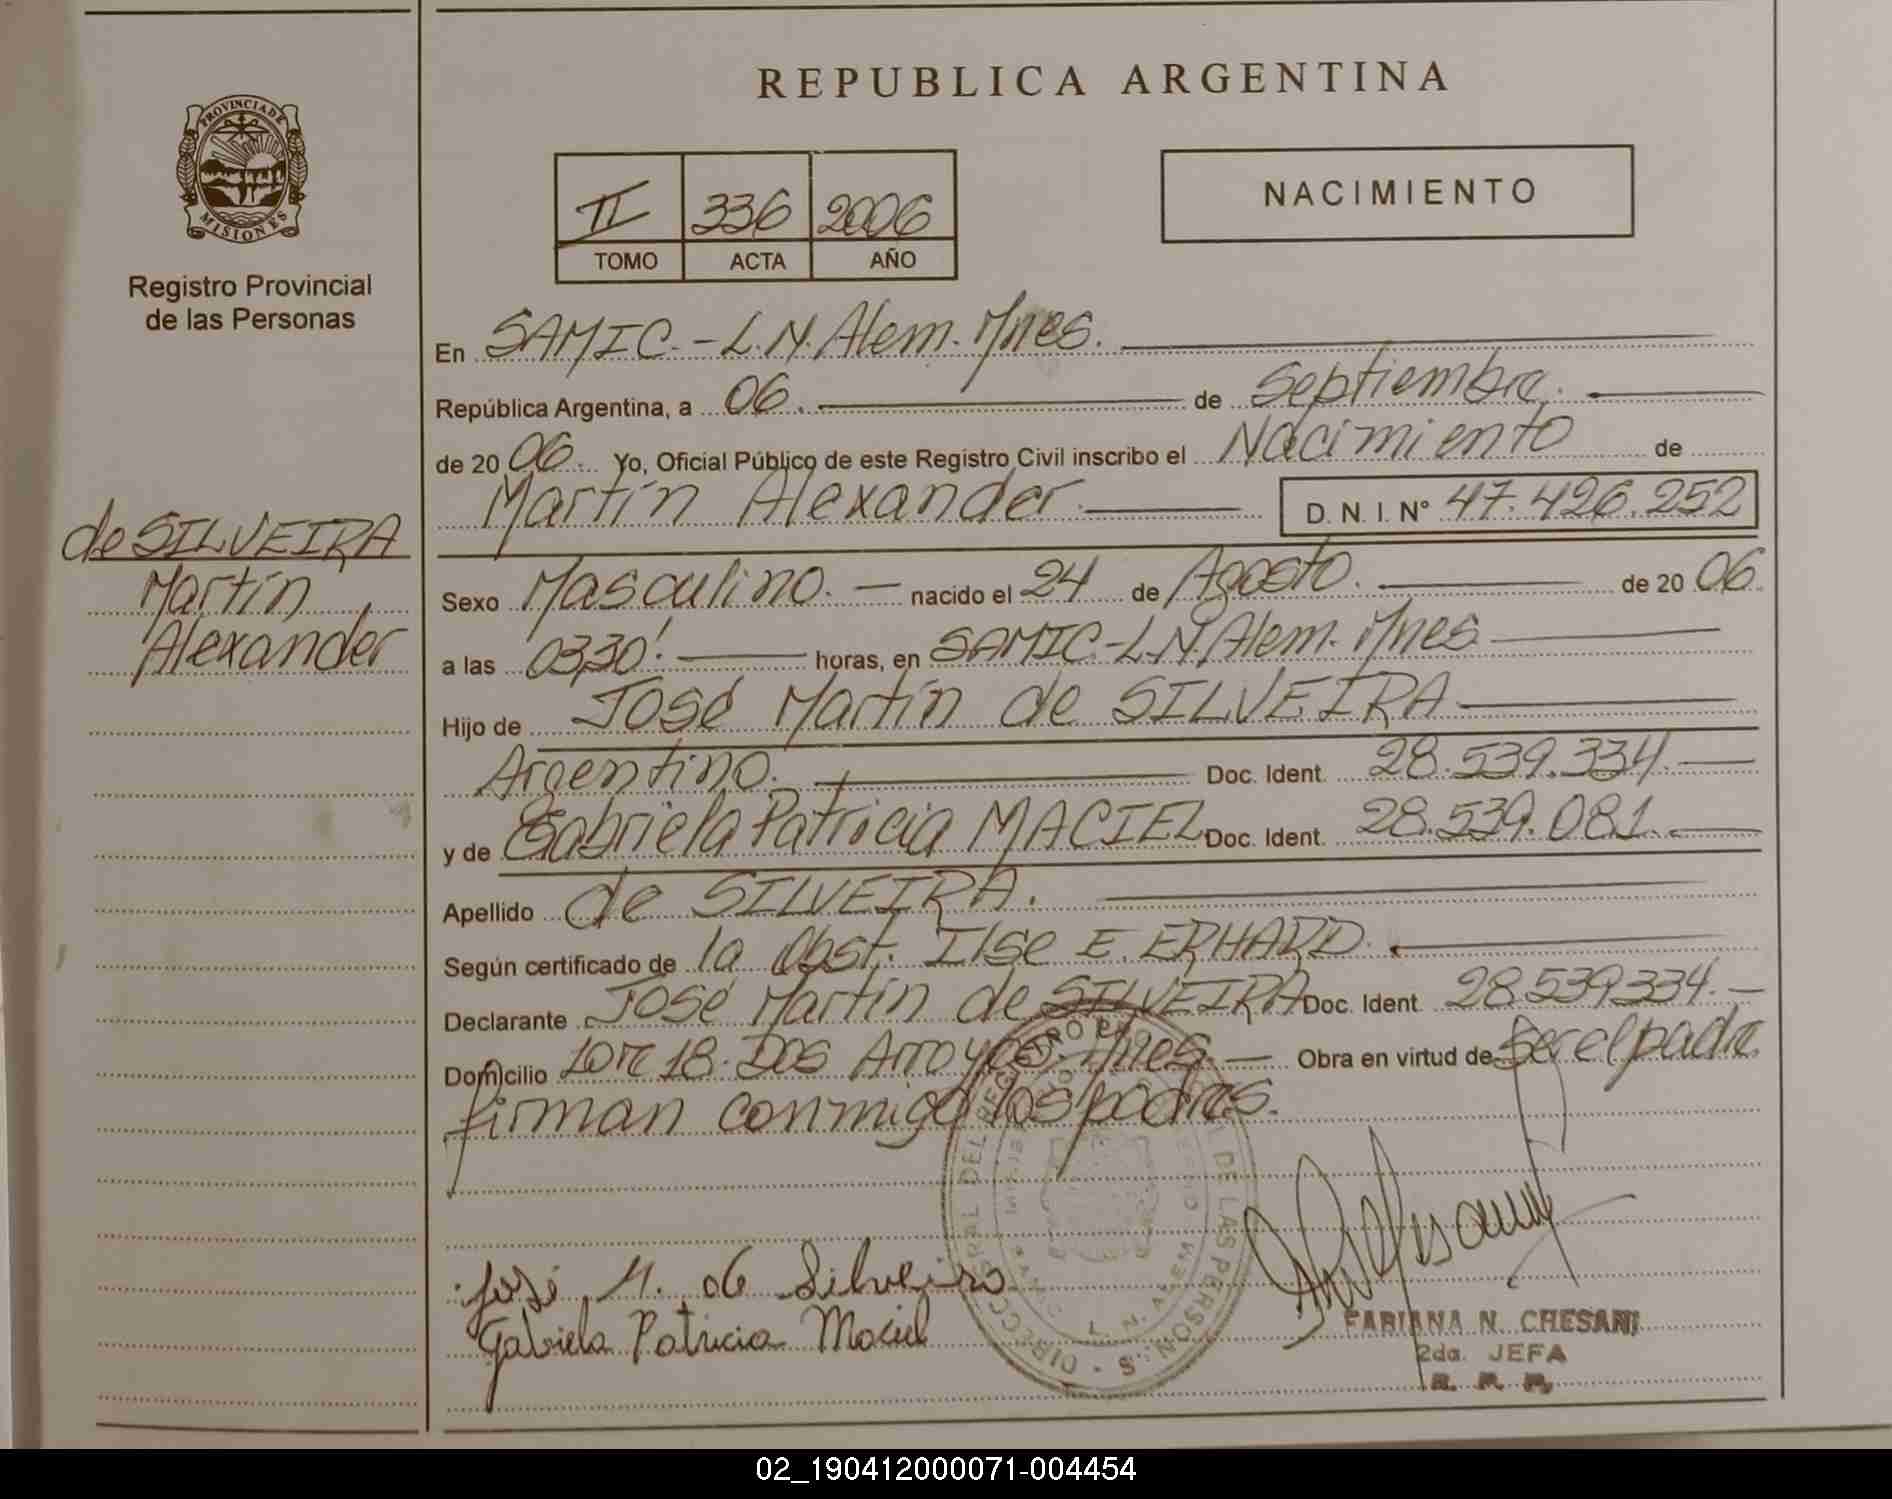 REPUBLICA ARGENTINA
PROVINCIA DE
MISIONES
Registro Provincial
de las Personas
NACIMIENTO
II 336 2006
TOMO ACTA AÑO
En SAMIC.-L.N.Alem.Mnes.
República Argentina, a 06. de Septiembre.
de 20 06. Yo, Oficial Público de este Registro Civil inscribo el Nacimiento de
Martín Alexander D. N. I. N° 47.426.252
de SILVEIRA
Martín
Alexander
Sexo Masculino.- nacido el 24 de Agosto. de 20 06.
a las 03,30'. horas, en SAMIC.-L.N.Alem.Mnes
Hijo de José Martín de SILVEIRA
Argentino. Doc. Ident. 28.539.334.-
y de Gabriela Patricia MACIEL Doc. Ident. 28.539.081.-
Apellido de SILVEIRA.
Según certificado de la Obst. Ilse E. ERHARD.
Declarante José Martín de SILVEIRA Doc. Ident. 28.539.334.-
Domicilio Lote 18. Dos Arroyos. Mnes.- Obra en virtud de Ser el padre
firman conmigo los padres.
José M. de Silveira
Gabriela Patricia Maciel
FABIANA N. CHESANI
2da. JEFA
02_190412000071-004454